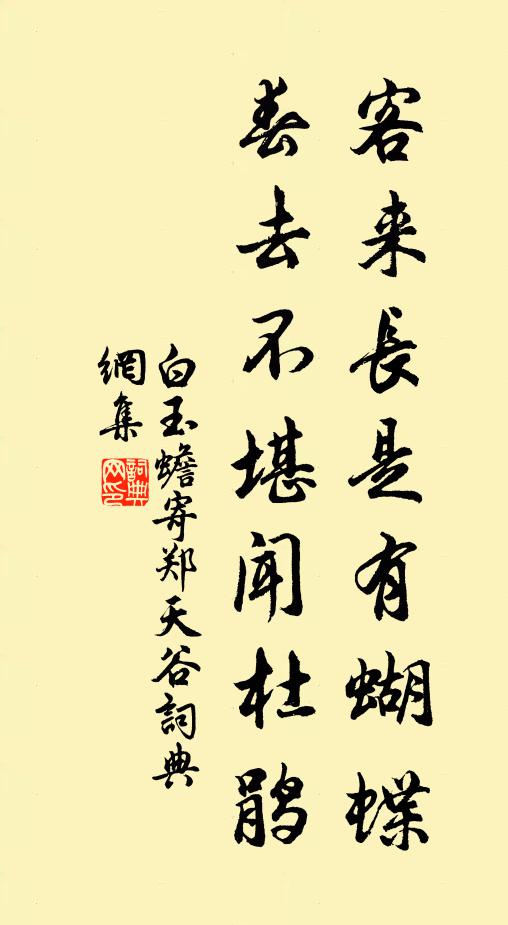 客来長是有蝴蝶
春去不堪闻杜鹃
白玉蟾寄郑天谷詞典
網集
詞典网印